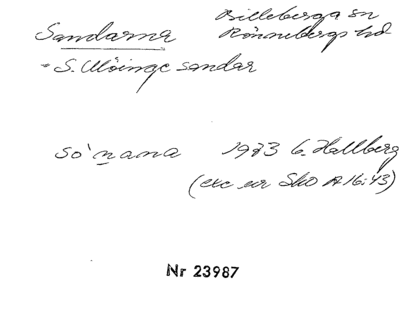 Sandarna
Billeberga sn
Rönnebergs hd
= S. Möinge sandar
so`nana 1933 G. Hallberg
(exc ur Sko A 16:43)
Nr 23987